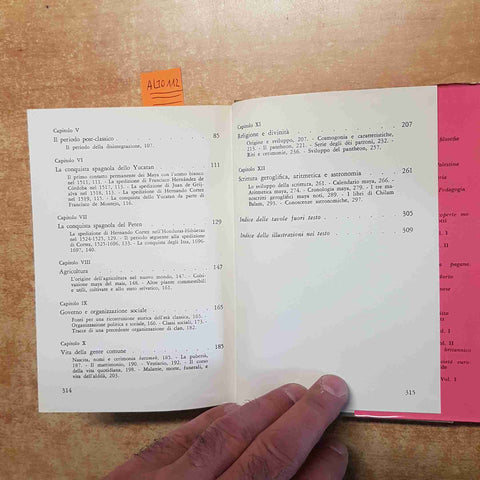 ALTO 112
Capitolo V
Il periodo post-classico 85
Il periodo della disintegrazione, 107.
Capitolo VI
La conquista spagnola dello Yucatan 111
Il primo contatto permanente dei Maya con l'uomo bianco
nel 1511, 111. - La spedizione di Francisco Hernández de
Córdoba nel 1517, 113. - La spedizione di Juan de Gri-
jalva nel 1518, 113. - La spedizione di Hernando Cortez
nel 1519, 115. - La conquista dello Yucatan da parte di
Francisco de Montejo, 116.
Capitolo VII
La conquista spagnola del Peten 129
La spedizione di Hernando Cortez nell'Honduras-Hibueras
nel 1524-1525, 129. - Il periodo seguente alla spedizione
di Cortez, 1525-1696, 130. - La conquista degli Itza, 1696-
1697, 140.
Capitolo VIII
Agricoltura 147
L'origine dell'agricoltura nel nuovo mondo, 147. - Colti-
vazione maya del mais, 148. - Altre piante commestibili
e utili, coltivate e allo stato selvatico, 161.
Capitolo IX
Governo e organizzazione sociale 165
Fonti per una ricostruzione storica dell'età classica, 165.
Organizzazione politica e sociale, 166. - Classi sociali, 173.
Tracce di una precedente organizzazione di clan, 182.
Capitolo X
Vita della gente comune 185
Nascita, nomi e cerimonia 185. - La pubertà,
187. - Il matrimonio, 190. - Vestiario, 192. - Il corso
della vita quotidiana, 198. - Malattie, morte, funerali, e
vita dell'aldilà, 203.
314
Capitolo XI
Religione e divinità 207
Origine e sviluppo, 207. - Cosmogonia e caratteristiche,
215. - Il pantheon, 221. - Serie degli dei patroni, 232. -
Riti e cerimonie, 236. - Sviluppo del pantheon, 257.
Capitolo XII
Scrittura geroglifica, aritmetica e astronomia 261
Lo sviluppo della scrittura, 261. - Calendario maya, 266. -
Aritmetica maya, 275. - Cronologia maya, 279. - I tre ma-
noscritti geroglifici maya noti, 289. - I libri di Chilam
Balam, 293. - Conoscenze astronomiche, 297.
Indice delle tavole fuori testo 305
Indice delle illustrazioni nel testo 309
315
filosofie
Palestina
Pedagogia
Vol. II
pagane.
Vol. I
Vol. II
britannico
Vol. I